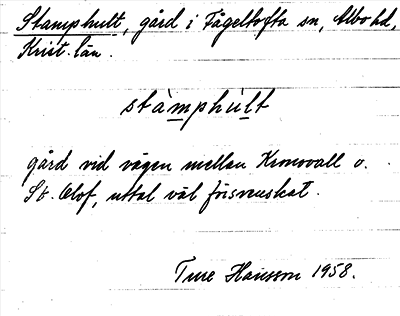 Stamphult, gård i Fågeltofta sn, Albo hd,
Krist. län.
stàmphul̀t
gård vid vägen mellan Kronovall o.
St. Olof, uttal väl försvenskat.
Ture Hansson 1958.